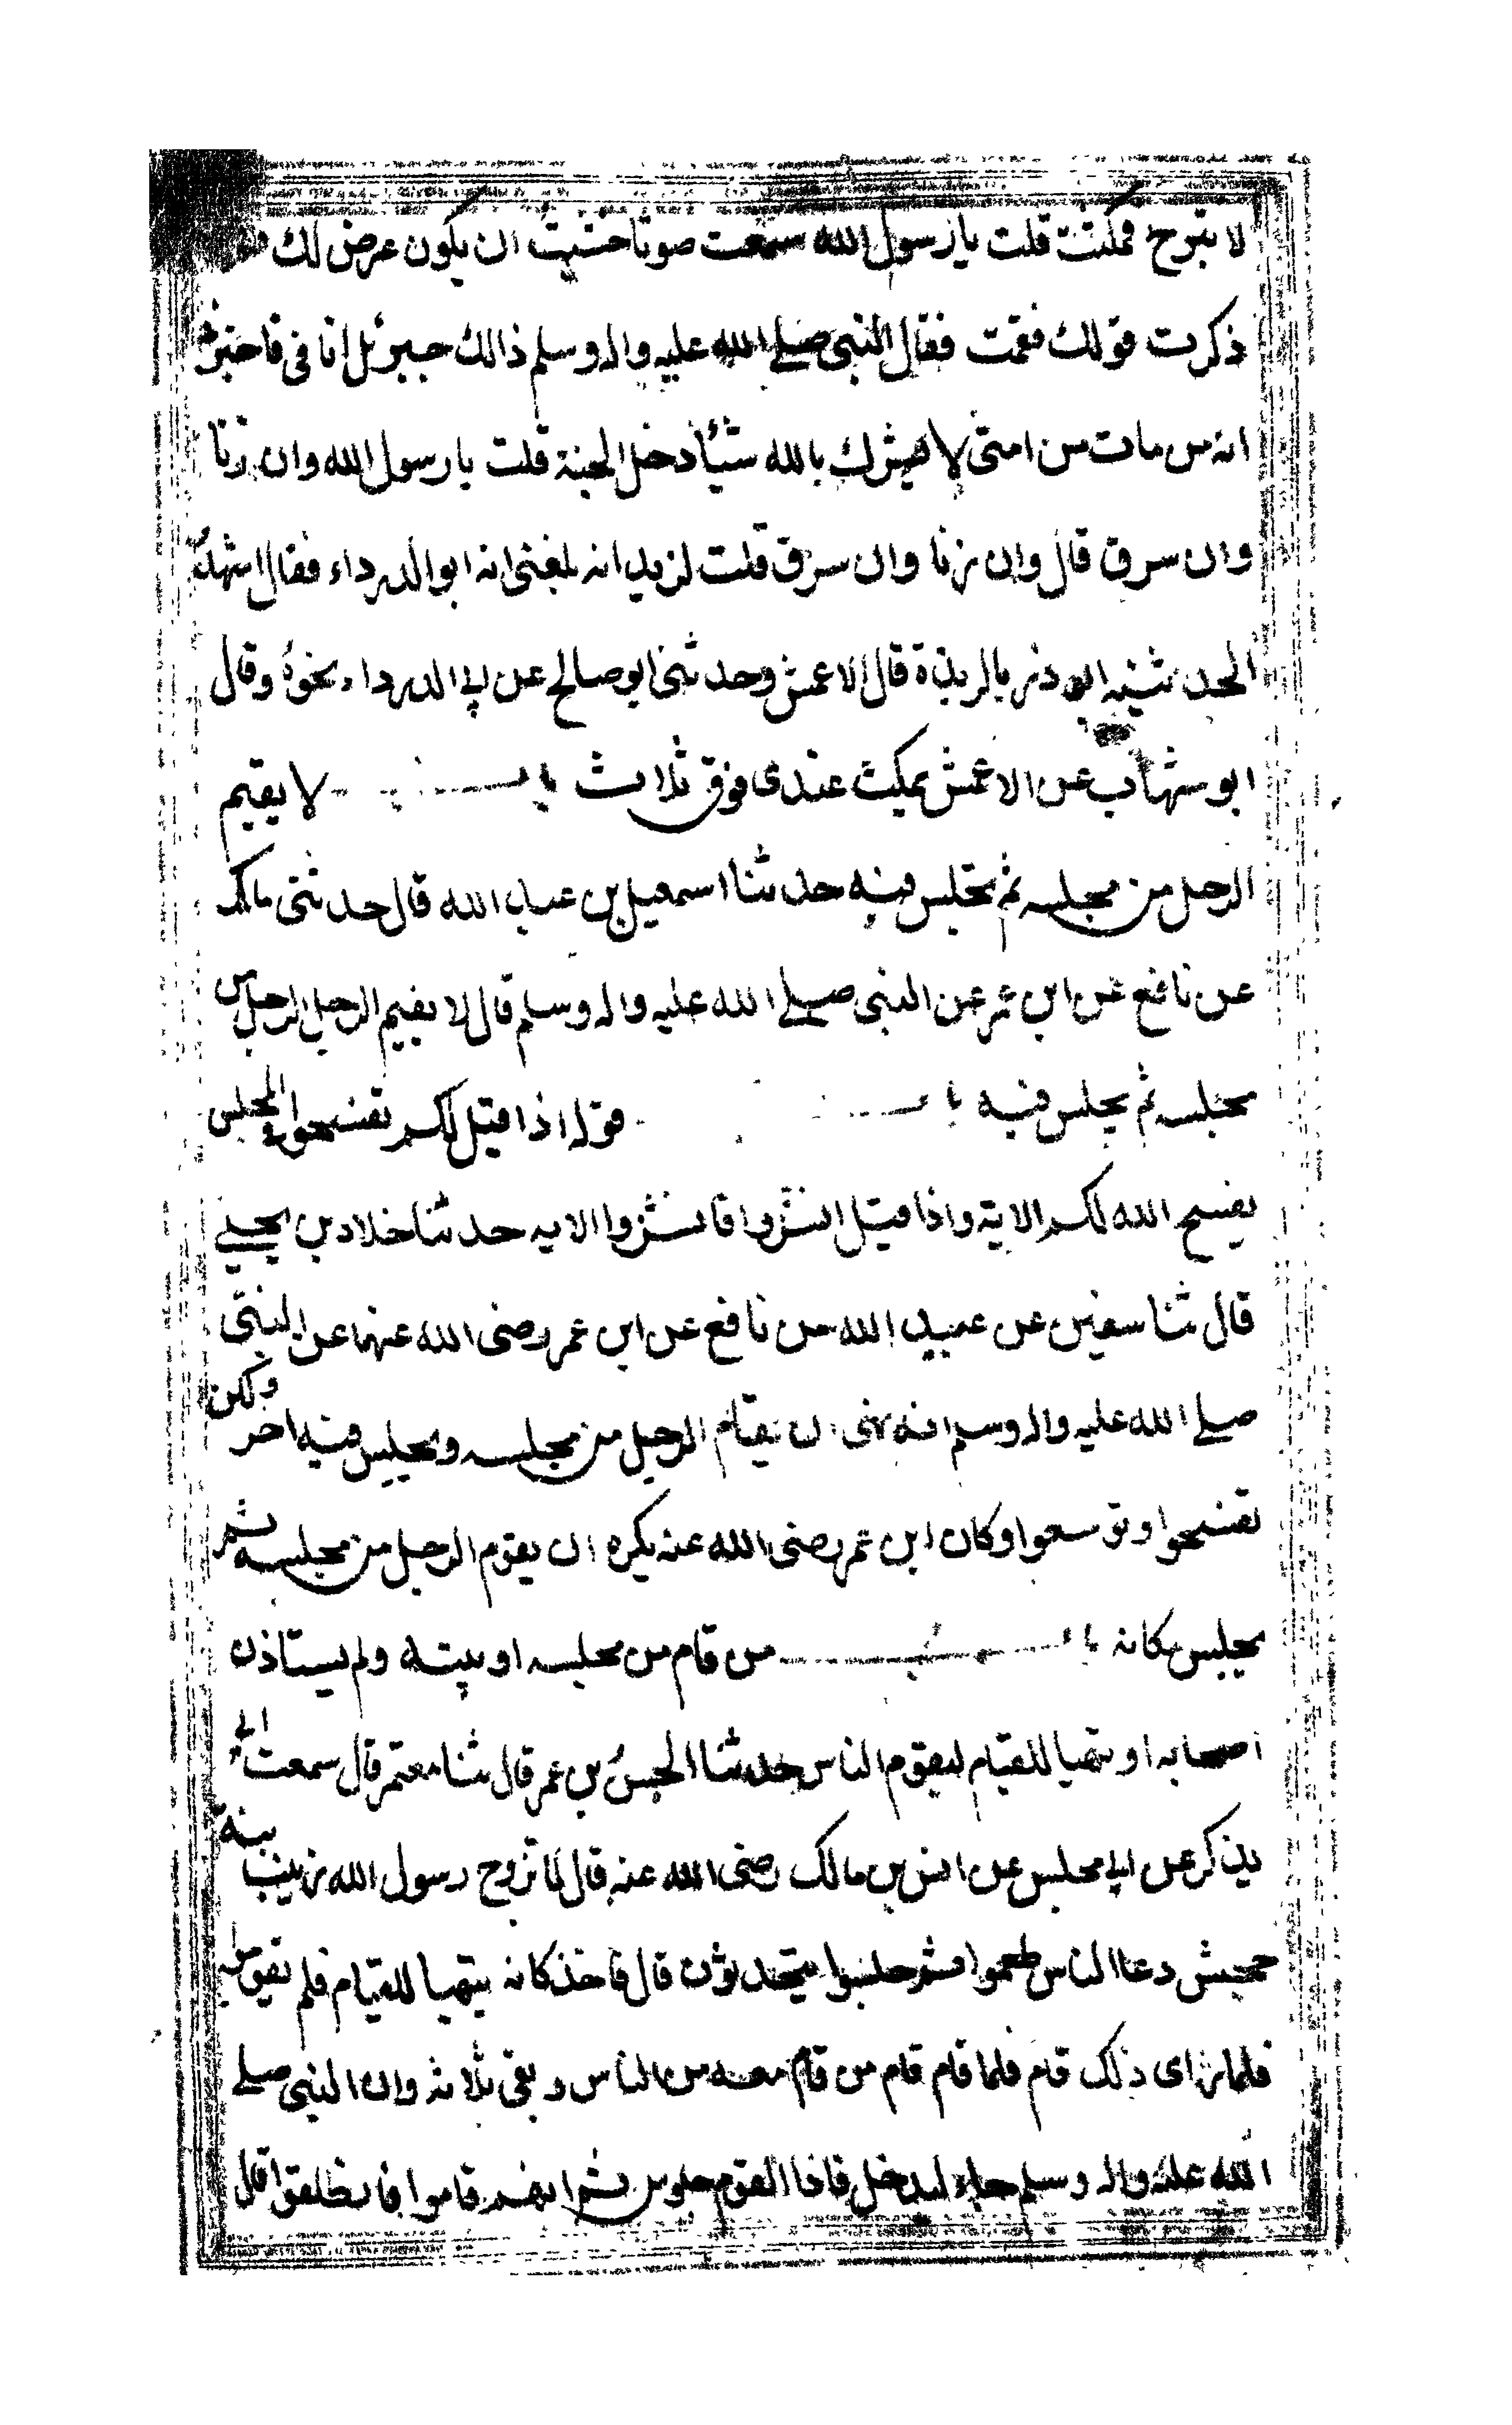 لا تبرح فمكثت قلت يا رسول الله سمعت صوتا خشيت ان يكون عرض لك
ذكرت قولك فقمت فقال النبى صلى الله عليه واله وسلم ذالك جبرئيل اتانى فاخبرنى
انه من مات من امتى لا يشرك بالله شيئا دخل الجنة قلت يا رسول الله وان زنا
وان سرق قال وان زنا وان سرق قلت لزيد انه بلغنى انه ابو الدرداء فقال اشهد
لحدثنيه ابو ذر بالربذة قال الاعمش وحدثنى ابو صالح عن ابى الدرداء نحوه وقال
ابو شهاب عن الاعمش يمكث عندى فوق ثلاث باب لا يقيم
الرجل من مجلسه ثم يجلس فيه حدثنا اسمعيل بن عبد الله قال حدثنى مالك
عن نافع عن ابن عمر عن النبى صلى الله عليه واله وسلم قال لا يقيم الرجل الرجل من
مجلسه ثم يجلس فيه باب قوله اذا قيل لكم تفسحوا فى المجلس
يفسح الله لكم الاية واذا قيل انشزوا فانشزوا الايه حدثنا خلاد بن يحيى
قال ثنا سفين عن عبيد الله عن نافع عن ابن عمر رضى الله عنهما عن النبى
صلى الله عليه واله وسلم انه نهى ان يقام الرجل من مجلسه ويجلس فيه اخر ولكن
تفسحوا وتوسعوا وكان ابن عمر رضى الله عنه يكره ان يقوم الرجل من مجلسه ثم
يجلس مكانه باب من قام من مجلسه او بيته ولم يستاذن
اصحابه او تهيا للقيام ليقوم الناس حدثنا الحسن بن عمر قال ثنا معتمر قال سمعت ابى
يذكر عن ابى مجلس عن انس بن مالك رضى الله عنه قال لما تزوج رسول الله زينب بنة
جحش دعا الناس طعموا ثم جلسوا يتحدثون قال فاخذ كانه يتهيا للقيام فلم يقوموا
فلما راى ذلك قام فلما قام قام من قام معه من الناس وبقى ثلاثه وان النبى صلى
الله عليه واله وسلم جاء ليدخل فاذا القوم جلوس ثم انهم قاموا فانطلقوا قال